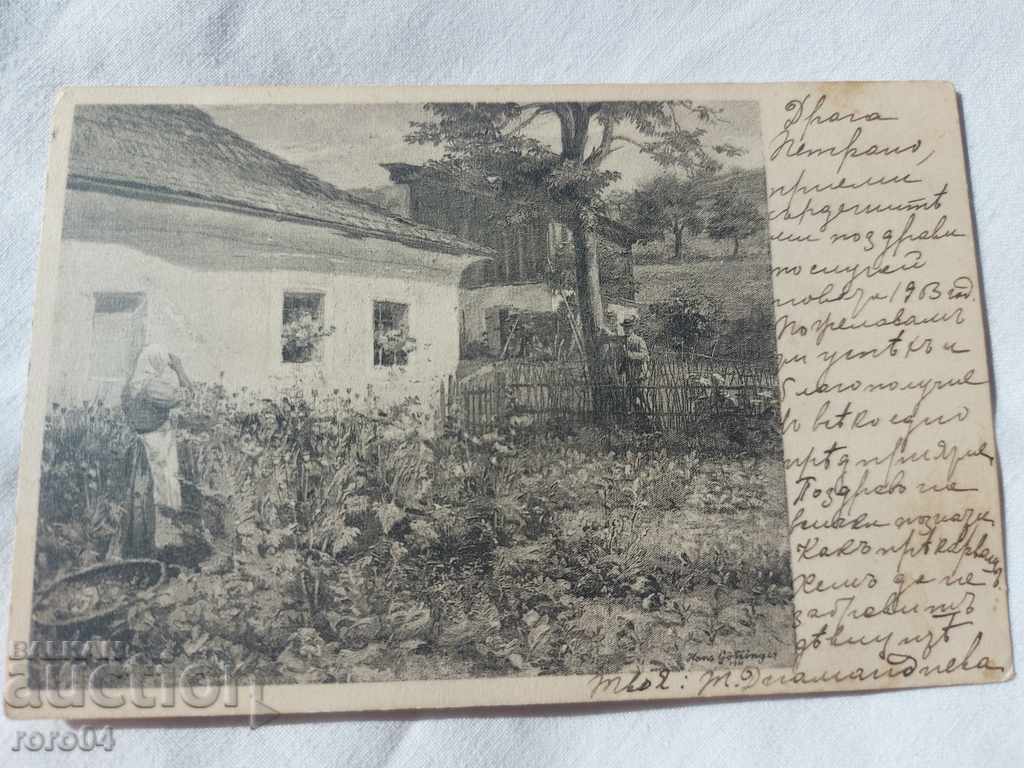 Драга
Петрано,
приеми
сърдечнитѣ
ми поздрави
по случей
1903 год.
Пожелавамъ
ти успѣхъ и
благополучие
въ всѣко едно
прѣдприятие
Поздравъ на
всички познати
Какъ прѣкарвашъ.
да не
забравишъ
Твоя: Т. Диамандиева
Hans Götzinger
BALKAN
auction
roro04